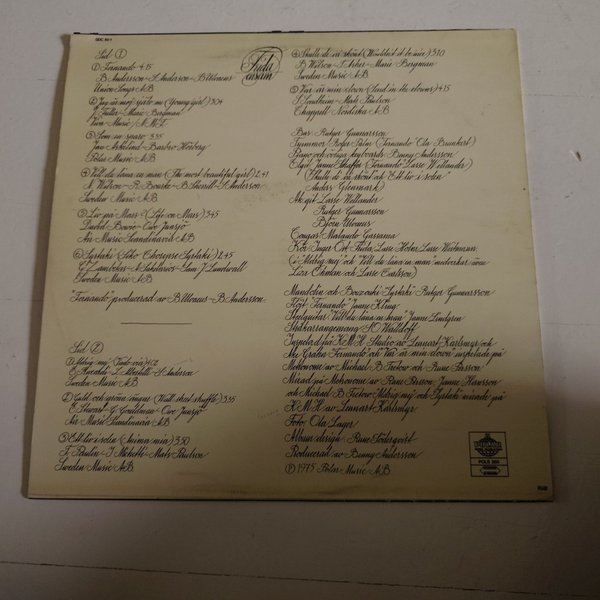 SDC 801
Sid 1
Frida
ensam
① Fernando 4.15
B. Andersson - S. Anderson - B. Ulvaeus
Union Songs AB
② Jag är mej själv nog (Young girl) 3.04
J. Fuller - Marie Bergman
Viva Music / N.M.I.
③ Som en sparv 3.35
Jan Askelind - Barbro Hörberg
Polar Music AB
④ Vill du låna en man (The most beautiful girl) 2.41
N. Wilson - R. Bourke - B. Sherrill - S. Anderson
Sweden Music AB
⑤ Liv på Mars? (Life on Mars) 3.45
David Bowie - Owe Junsjö
Air Music Scandinavia AB
⑥ Syrtaki (Siko Chorepse Syrtaki) 2.45
Sweden Music AB
"Fernando" producerad av B. Ulvaeus - B. Andersson
Sid 2
① Aldrig mej (Vado via) 4.02
S. Anderson
Sweden Music AB
② Guld och gröna ängar (Wall street shuffle) 3.35
E. Stewart - G. Gouldman - Owe Junsjö
Air Music Scandinavia AB
③ Ett liv i solen (Anima mia) 3.50
F. Paulin - I. Michetti - Mats Paulson
Sweden Music AB
④ Skulle de va skönt (Wouldn't it be nice) 3.10
B. Wilson - T. Asher - Marie Bergman
Sweden Music AB
⑤ Var är min clown (Send in the clowns) 4.15
S. Sondheim - Mats Paulson
Chappell Nordiska AB
Bas: Rutger Gunnarsson
Trummor: Roger Palm ("Fernando" Ola Brunkert)
Piano och övriga keyboards: Benny Andersson
Elgit: Janne Schaffer ("Fernando" Lasse Wellander)
("Skulle de va skönt" och "Ett liv i solen"
Anders Glenmark)
Ak.git: Lasse Wellander
Rutger Gunnarsson
Björn Ulvaeus
Congas: Malando Gassama
Kör: Inger Öst, Frida, Lasse Holm, Lasse Westmann,
(i "Aldrig mej" och "Vill du låna en man" medverkar även
Liza Öhman och Lasse Carlsson)
Mandolin och Bouzouki "Syrtaki": Rutger Gunnarsson
Flöjt "Fernando": Janne Kling
Steelguitar "Vill du låna en man": Janne Lindgren
Stråkarrangemang: S.O. Walldoff
Inspelad på K.M.H. Studio av Lennart Karlsmyr och
Åke Grahn. "Fernando" och "Var är min clown" inspelade på
Metronome av Michael B. Tretow och Rune Persson
Mixad på Metronome av Rune Persson, Janne Hansson
och Michael B. Tretow. "Aldrig mej" och "Syrtaki" mixade på
K.M.H. av Lennart Karlsmyr
Foto: Ola Lager
Album design: Rune Söderqvist
Producerad av Benny Andersson
Ⓟ 1975 Polar Music AB
POLS 265